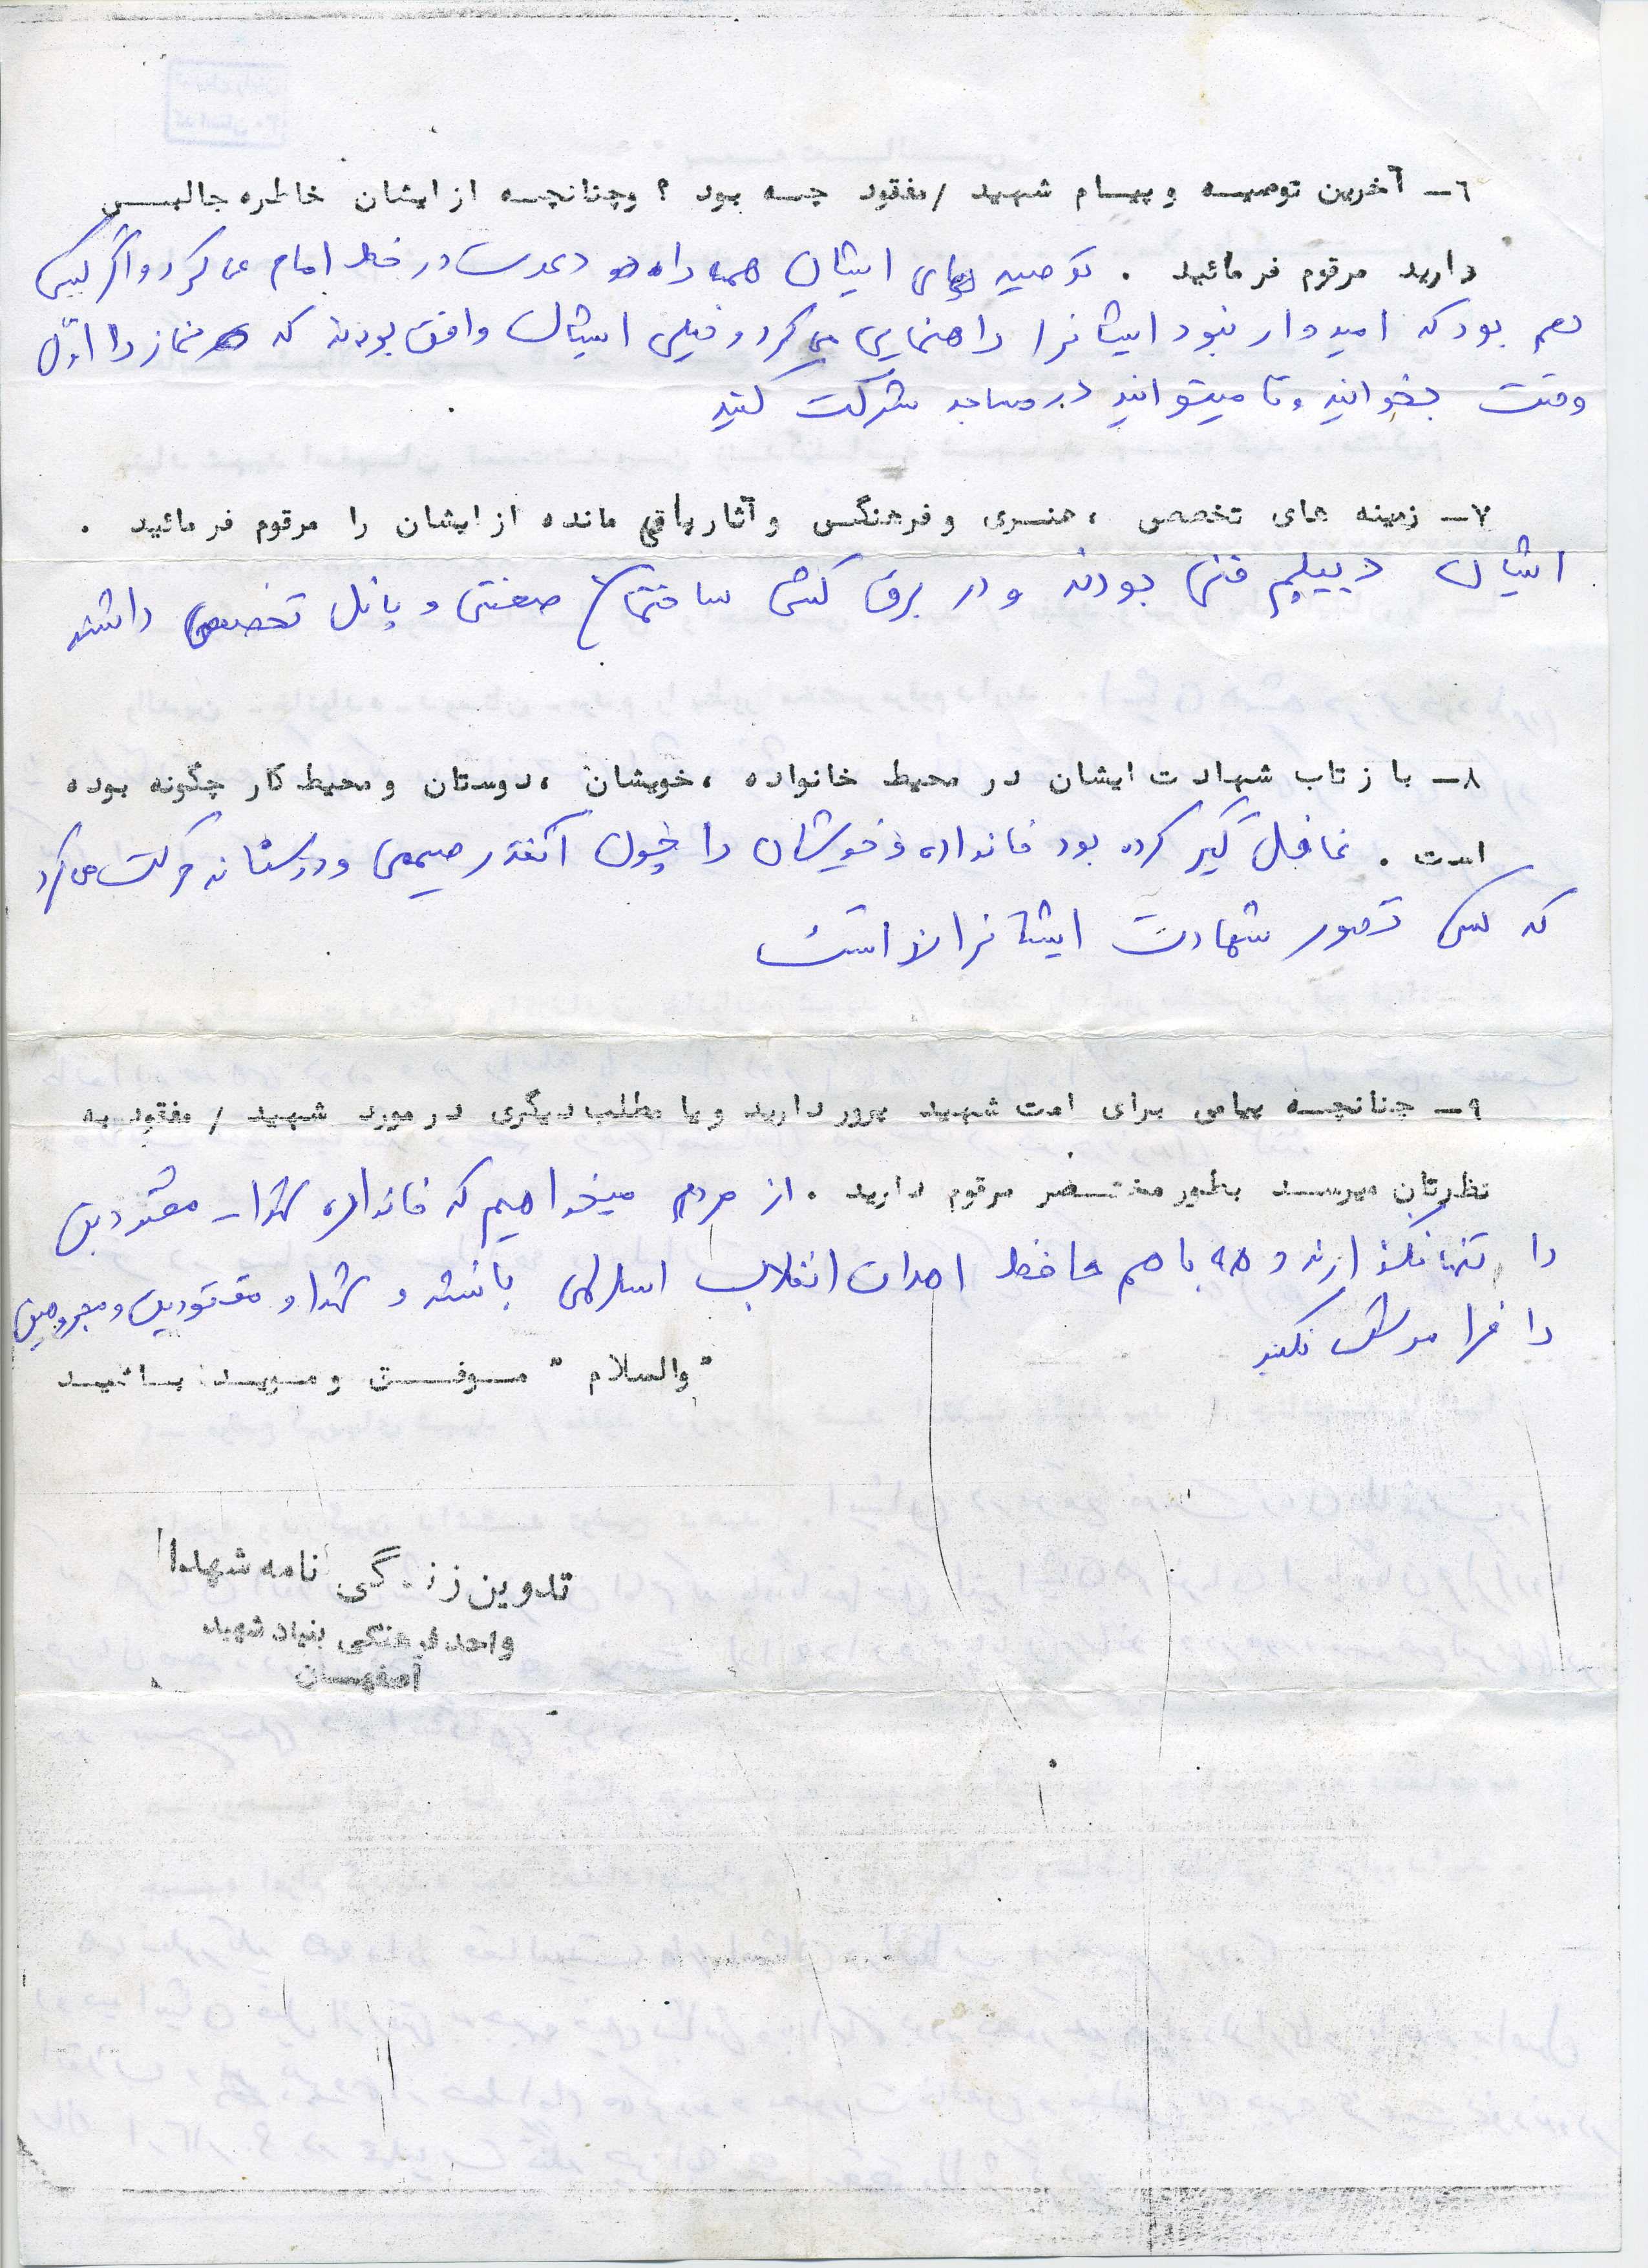 ٦ــ آخرین توصیه و پیام شهید /مفقود چه بود ؟ وچنانچه از ایشان خاطره جالبی
دارید مرقوم فرمائید . توصیه های ایشان همه را دعوت در خط امام می کرد و اگر کسی
هم بود که امیدوار نبود ایشانرا راهنمایی می کرد و خیلی ایشان بودند که نماز را اول
وقت بخوانید و تا میتوانید در مساجد شرکت کنید
٧ــ زمینه های تخصصی ، هنری و فرهنگی و آثار باقی مانده از ایشان را مرقوم فرمائید .
ایشان دیپلم فنی بودند و در برق کشی ساختمان صنعتی و پانل تخصص داشتند
٨ــ بازتاب شهادت ایشان در محیط خانواده ، خویشان ، دوستان و محیط کار چگونه بوده
است . غافل گیر کرده بود خانواده و خویشان را چون آنقدر صمیمی و دوستانه حرکت می کرد
که کسی تصور شهادت ایشانرا نداشت
٩ــ چنانچه پیامی برای امت شهید پرور دارید و یا مطلب دیگری در مورد شهید / مفقود به
نظرتان میرسد بطور مختصر مرقوم دارید . از مردم میخواهیم که خانواده شهدا ـ مفقودین
را تنها نگذارند و همه با هم حافظ اهداف انقلاب اسلامی باشند و شهدا و مفقودین و مجروحین
را فراموش نکنید
"والسلام" موفق و موید باشید
تدوین زندگی نامه شهدا
واحد فرهنگی بنیاد شهید
اصفهان